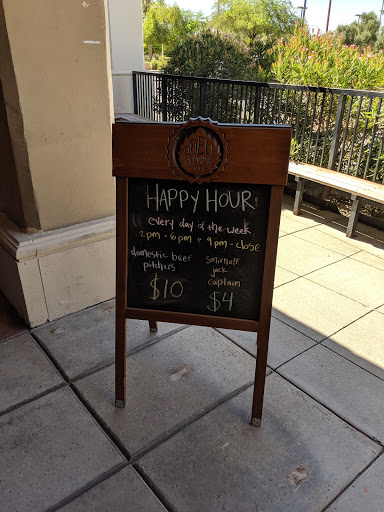 HAPPY HOUR
every day of the week
2pm - 6pm + 9pm - close
domestic beer
pitchers
$10
Smirnoff
jack
Captain
$4